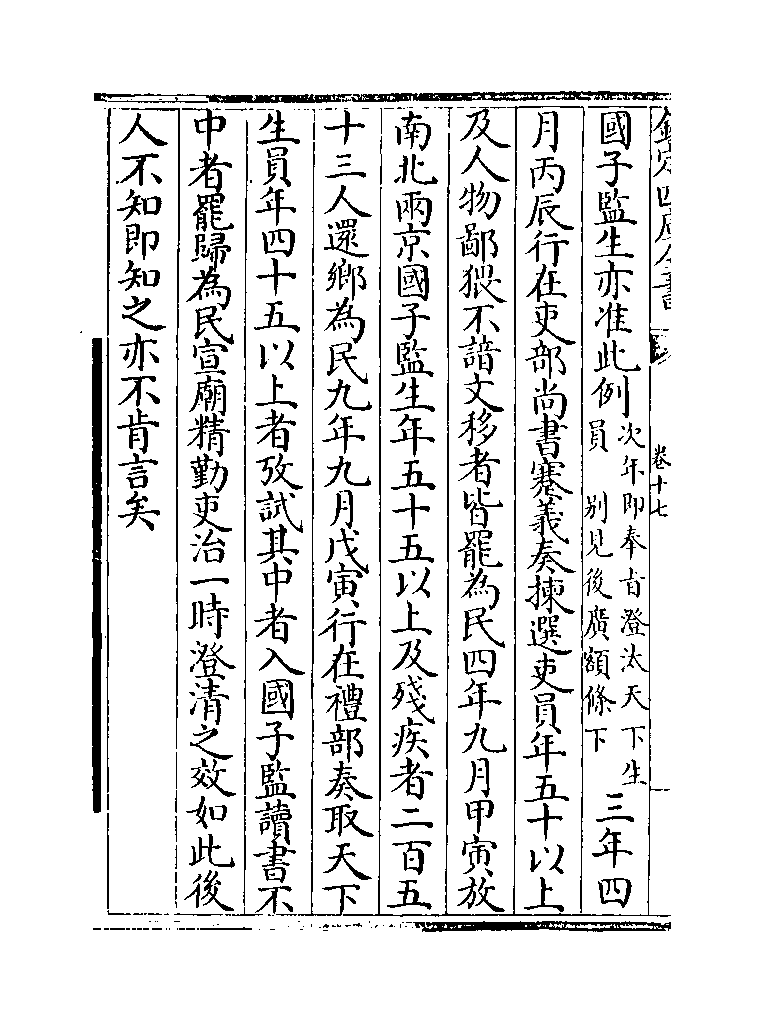 欽定四庫全書
卷十七
國子監生亦准此例次年即奉旨澄汰天下生員別見後廣額條下三年四
月丙辰行在吏部尚書蹇義奏揀選吏員年五十以上
及人物鄙猥不諳文移者皆罷為民四年九月甲寅放
南北兩京國子監生年五十五以上及殘疾者二百五
十三人還鄉為民九年九月戊寅行在禮部奏取天下
生員年四十五以上者攷試其中者入國子監讀書不
中者罷歸為民宣廟精勤吏治一時澄清之效如此後
人不知即知之亦不肯言矣